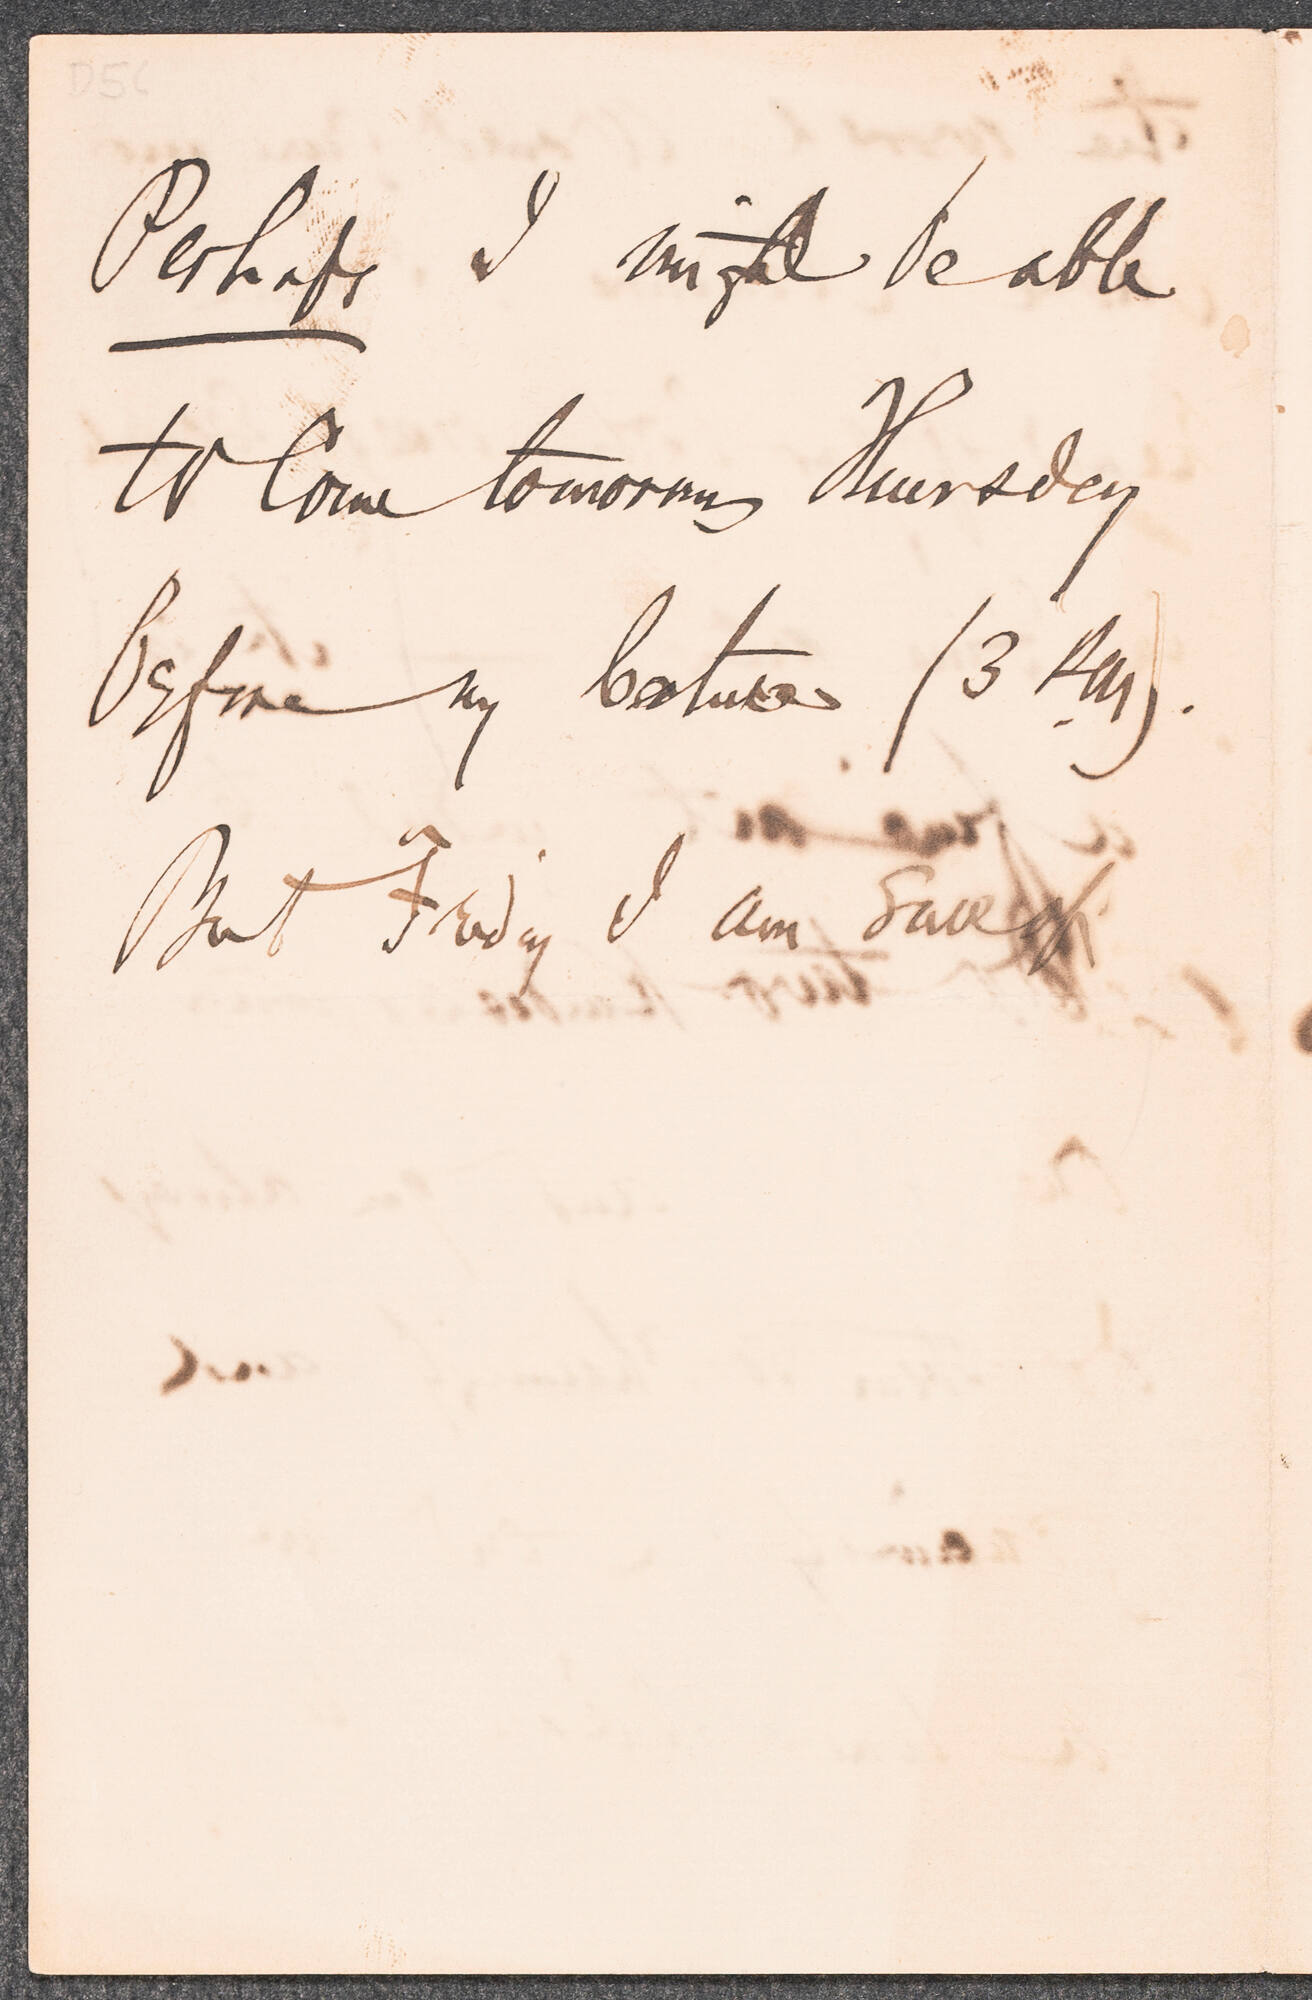 D56
Perhaps I might be able
to Come tomorrow Thursday
before my lecture (3 P.M).
But Friday I am sure of